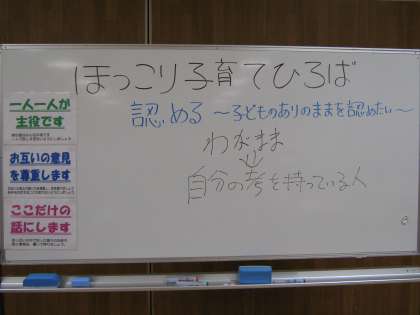 ほっこり子育てひろば
認める ～子どものありのままを認めたい～
わがまま
↓
自分の考を持っている人
一人一人が
主役です
お互いの意見
を尊重します
ここだけの
話にします